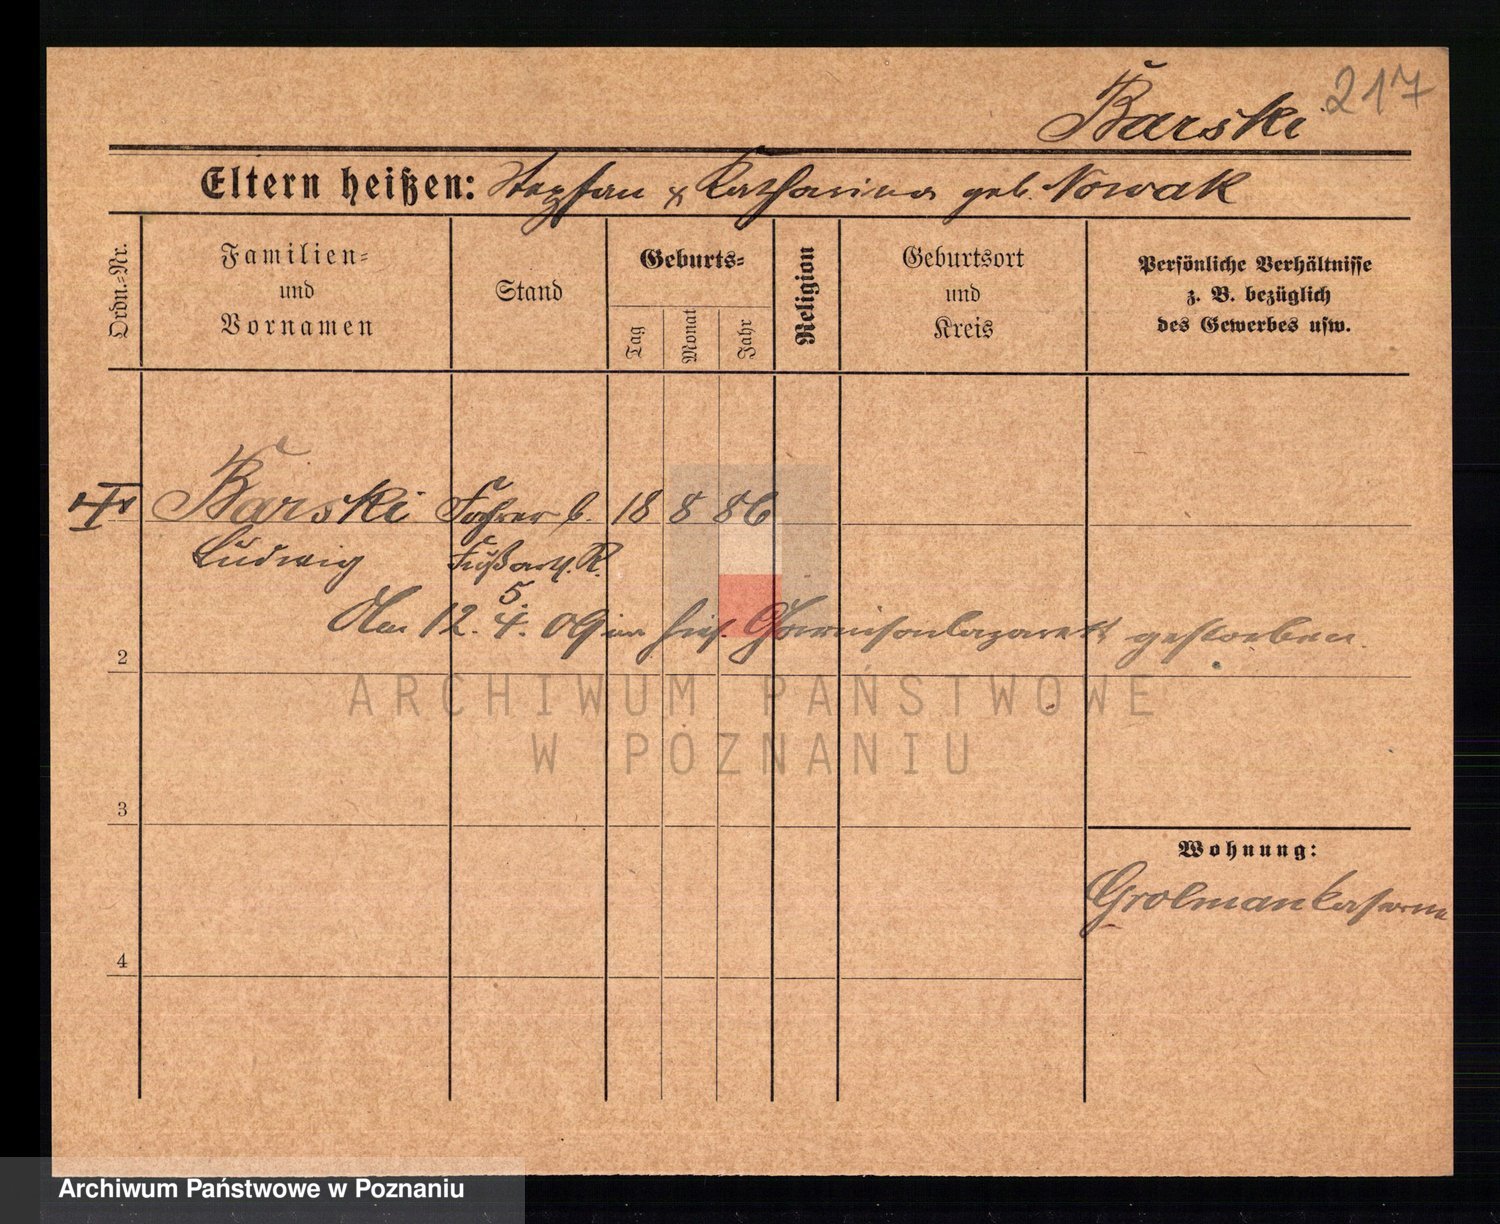 Barski 217
Eltern heißen: Stephan & Katharina geb. Nowak
Ordn.-Nr.
Familien-
und
Vornamen
Stand
Geburts-
Tag
Monat
Jahr
Religion
Geburtsort
und
Kreis
Persönliche Verhältnisse
z. B. bezüglich
des Gewerbes usw.
Barski Fahrer b. 18 8 86
Ludwig Fußart. R. 5.
Am 12. 4. 09 im hies. Garnisonlazarett gestorben
2
3
4
Wohnung:
Grolmankaserne
ARCHIWUM PAŃSTWOWE
W POZNANIU
Archiwum Państwowe w Poznaniu